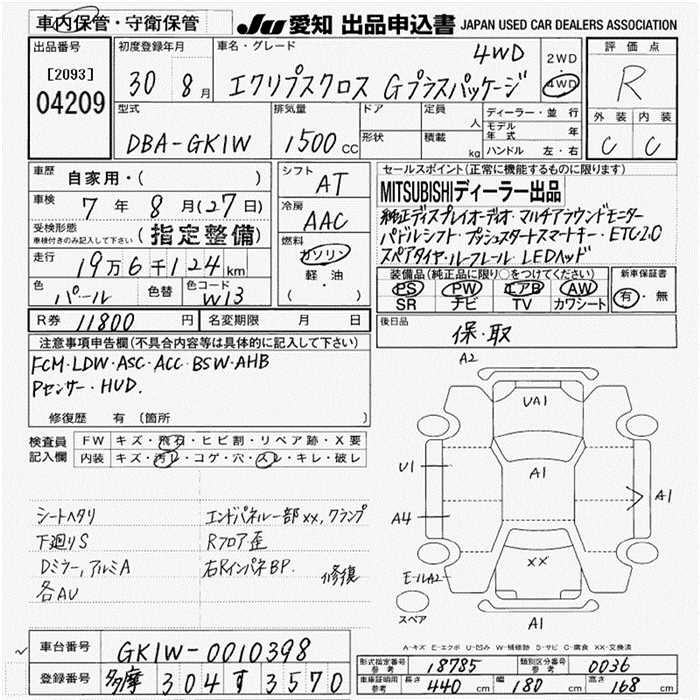 車内保管・守衛保管
JU 愛知 出品申込書 JAPAN USED CAR DEALERS ASSOCIATION
出品番号
[2093]
04209
初度登録年月
30 8月
車名・グレード
4WD
エクリプスクロス Gプラスパッケージ
2WD
4WD
評価点
R
外装 内装
C C
型式
DBA-GK1W
排気量
1500cc
ドア
形状
定員 人
積載 kg
ディーラー・並行
モデル年式 年
ハンドル 左・右
車歴
自家用・( )
車検
7年8月(27日)
受検形態
車検付きのみ記入して下さい
(指定整備)
走行
19万6千124km
色
パール
色替
色コード
W13
シフト
AT
冷房
AAC
燃料
ガソリン
軽油
( ・ )
R券 11800円
名変期限 月 日
セールスポイント(正常に機能するものに限ります)
MITSUBISHIディーラー出品
純正ディスプレイオーディオ・マルチアラウンドモニター
パドルシフト・プッシュスタートスマートキー・ETC2.0
スペアタイヤ・ルーフレール LEDヘッド
装備品(純正品に限り○をつけてください)
PS PW エアB AW
SR ナビ TV カワシート
新車保証書
有・無
後日品
保・取
注意事項申告欄(不具合内容等は具体的に記入して下さい)
FCM・LDW・ASC・ACC・BSW・AHB
Pセンサー・HUD.
修復歴 有 (箇所 )
検査員
記入欄
FW キズ・飛石・ヒビ割・リペア跡・X要
内装 キズ・汚レ・コゲ・穴・スレ・キレ・破レ
シートヘタリ
下廻りS
Dミラー,アルミA
各AU
エンドパネル一部XX,クランプ
Rフロア歪
右RインパネBP. 修復
A2
UA1
U1
A1
A1
A4
XX
E-ルA2
スペア
A1
A-キズ E-エクボ U-凹み W-補修跡 S-サビ C-腐食 XX-交換済
車台番号
GK1W-0010398
登録番号
多摩 304 す 3570
形式指定番号
参考
18785
類別区分番号
参考
0036
車庫証明用
参考
長さ 440cm
幅 180cm
高さ 168cm